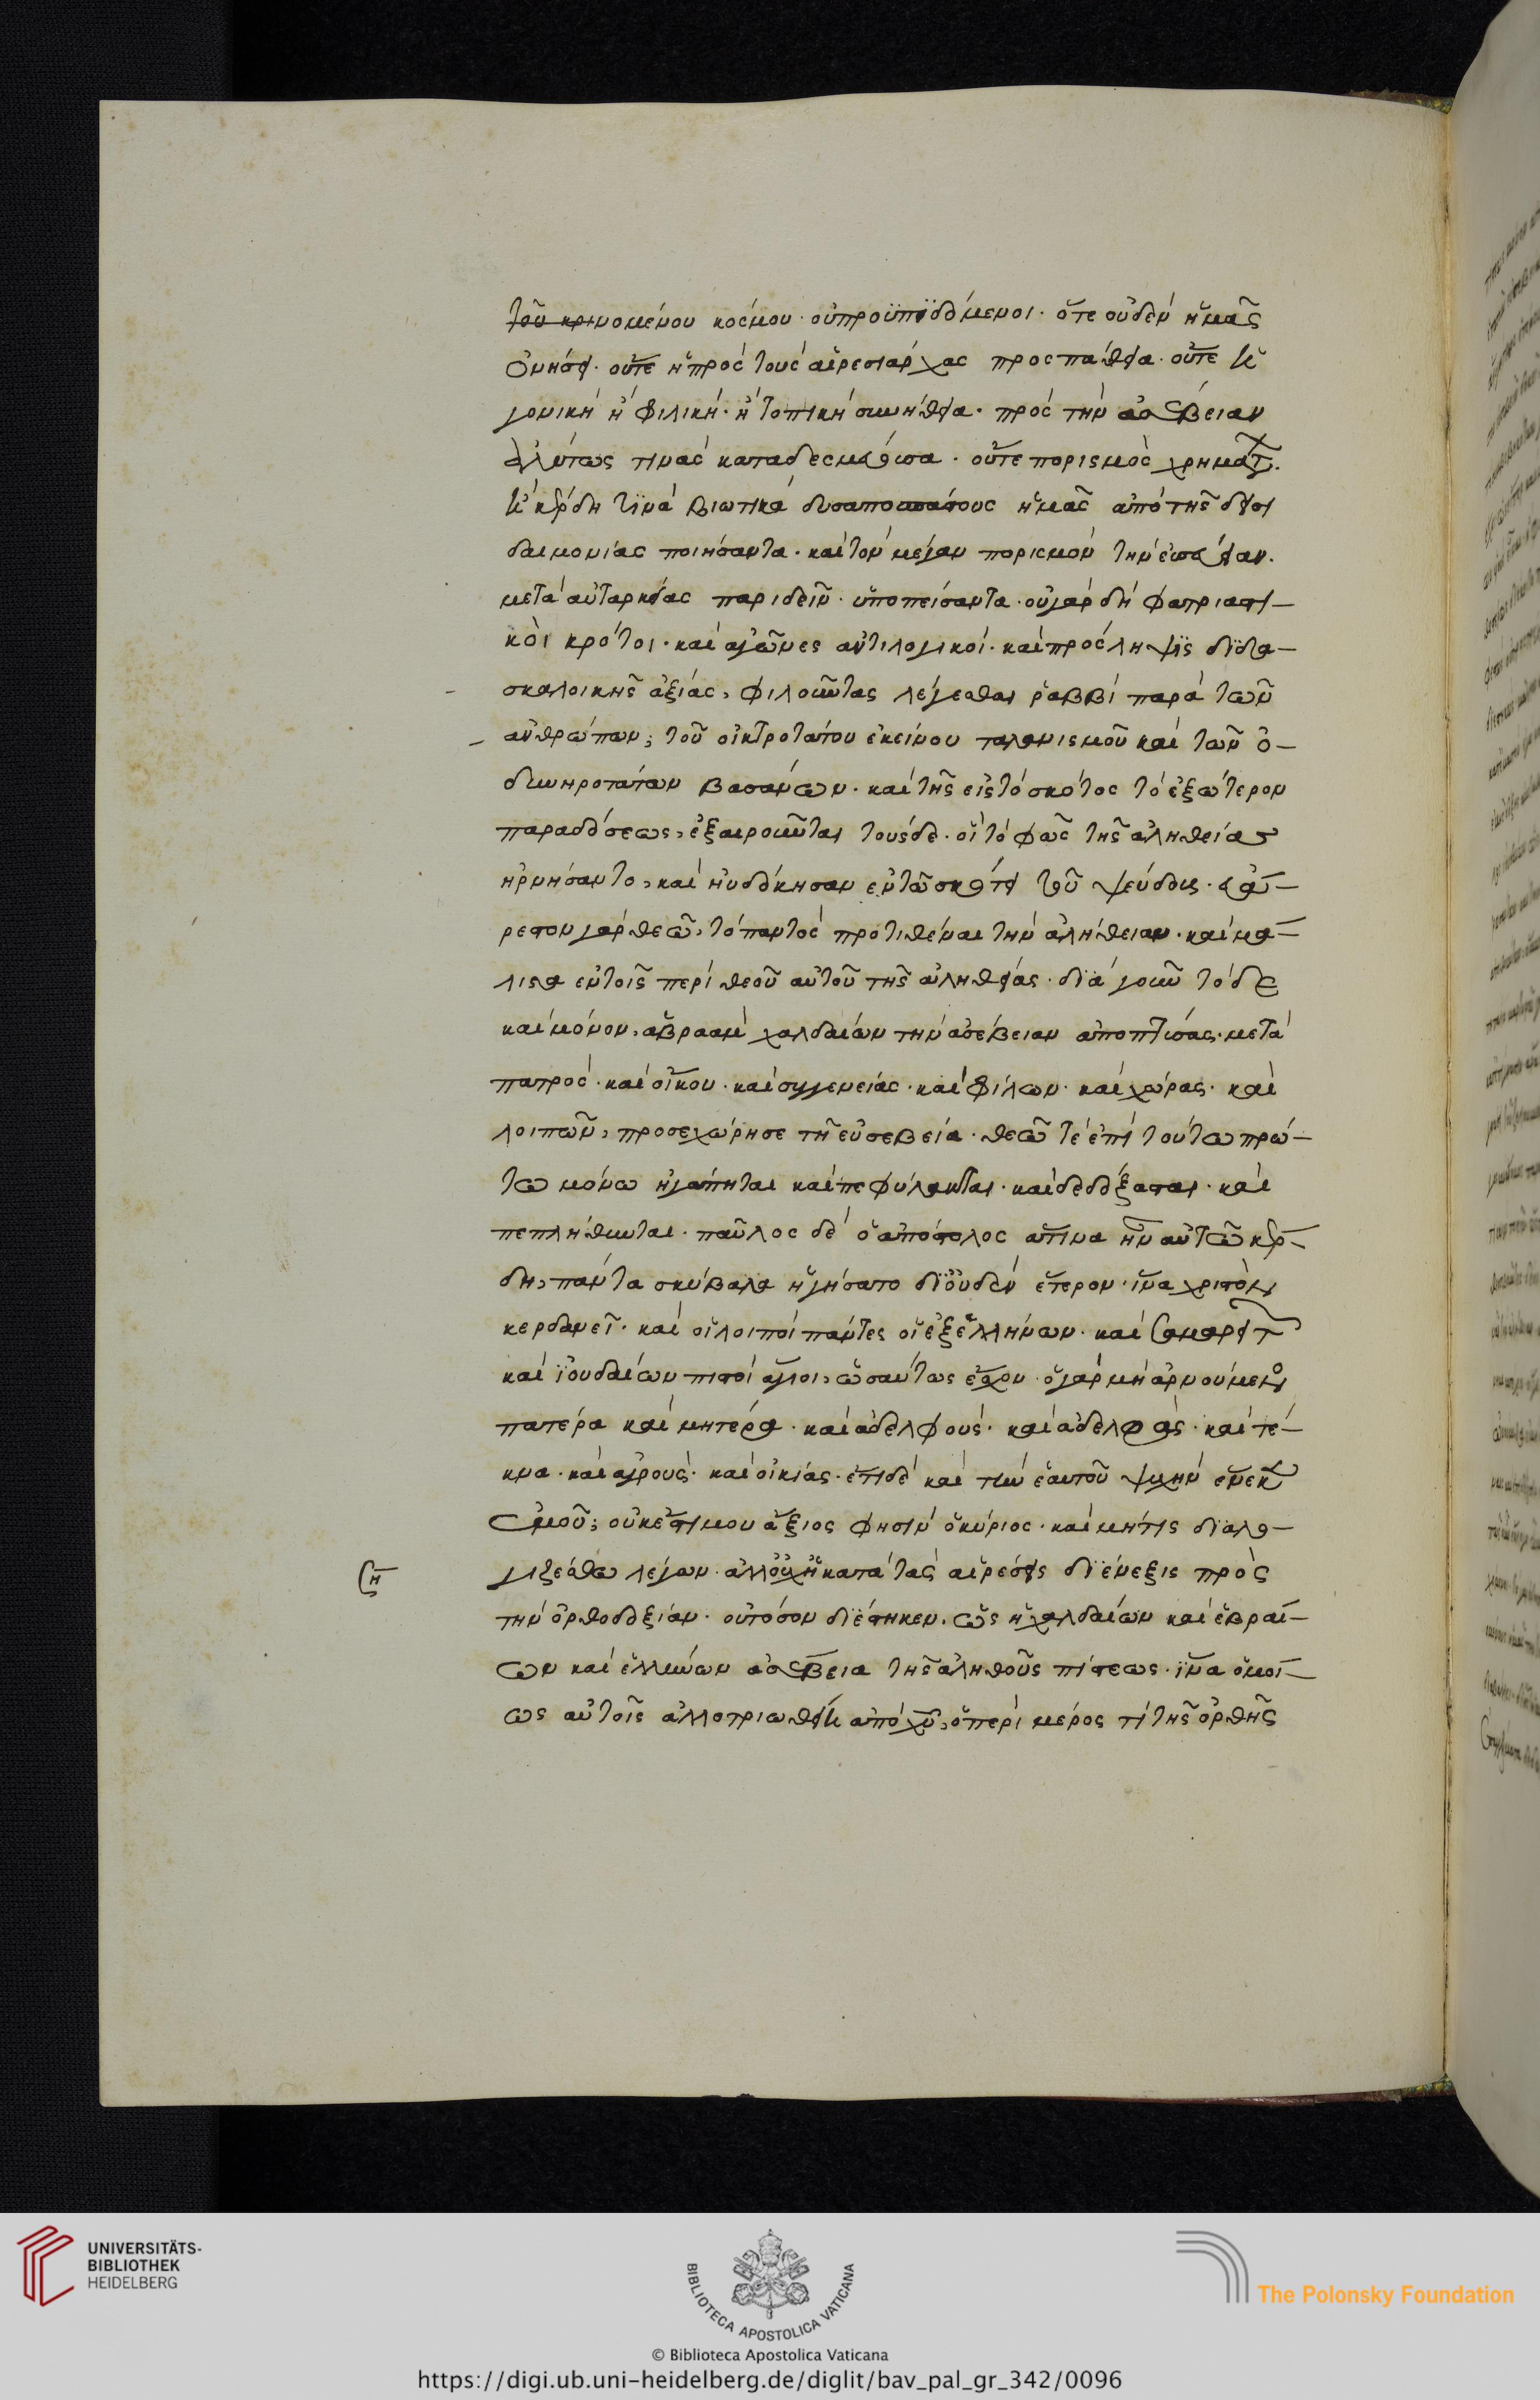 τοῦ κρινομένου κόσμου· οὐ προϋπϊδόμενοι· ὅτε οὐδὲν ἡμᾶς
ὀνήσει· οὔτε ἡ πρὸς τοὺς αἱρεσιάρχας προσπάθεια· οὔτε ἢ
γονικὴ ἢ φιλικὴ· ἢ τοπικὴ συνήθεια· πρὸς τὴν ἀσέβειαν
ἀλύτως τινὰς καταδεσμεύουσα· οὔτε πορισμὸς χρημάτ
ἢ κέρδη τϊνὰ βιωτικὰ δυσαποσπάστους ἡμᾶς ἀπὸ τῆς δεισι
δαιμονίας ποιήσαντα· καὶ τὸν μέγαν πορισμὸν τὴν εὐσέβειαν·
μετὰ αὐταρκείας παριδεῖν· ὑποπείσαντα· οὐ γὰρ δὴ φατριαστι-
κοὶ κρότοι· καὶ ἀγῶνες ἀντιλογικοί· καὶ πρόσληψϊς δϊδα-
σκαλοικῆς ἀξίας, φιλοῦντας λέγεσθαι ῥαββὶ παρὰ τῶν
ἀνθρώπων, τοῦ οἰκτροτάτου ἐκείνου ταλανισμοῦ καὶ τῶν ὀ-
δυνηροτάτων βασάνων· καὶ τῆς εἰς τὸ σκότος τὸ ἐξώτερον
παραδόσεως, ἐξαιροῦνται τοὺς δὲ· οἳ τὸ φῶς τῆς ἀληθείας
ἠρνήσαντο, καὶ ηὐδόκησαν ἐν τῶ σκότει τοῦ ψεύδους· εὐά-
ρεστον γὰρ θεῶ, τὸ παντὸς προτιθέναι τὴν ἀλήθειαν· καὶ μά-
λιστα ἐν τοῖς περὶ θεοῦ αὐτοῦ τῆς ἀληθείας· δϊά γοῦν τόδε
καὶ μόνον, ἁβραὰμ χαλδαίων τὴν ἀσέβειαν ἀποπτύσας· μετὰ
πατρὸς· καὶ οἴκου· καὶ συγγενείας· καὶ φίλων· καὶ χώρας· καὶ
λοιπῶν, προσεχώρησε τῆ εὐσεβεία· θεῶ τὲ ἐπὶ τούτω πρώ-
τω μόνω ἠγάπηται καὶ πεφύλακται· καὶ δεδόξασται· καὶ
πεπλήθυνται· παῦλος δὲ ὁ ἀπόστολος ἅτινα ἦν αὐτῶ κέρ-
δη, πάντα σκύβαλα ἡγήσατο δϊ' οὐδὲν ἕτερον· ἵνα χριστὸν
κερδανεῖ· καὶ οἱ λοιποὶ πάντες οἱ ἐξ ἑλλήνων· καὶ σαμαρειτ
καὶ ϊουδαίων πιστοὶ ἅγιοι, ὡσαύτως ἔσχον· ὁ γὰρ μὴ ἀρνούμενος
πατέρα καὶ μητέρα· καὶ ἀδελφοὺς· καὶ ἀδελφὰς· καὶ τέ-
κνα· καὶ ἀγροὺς· καὶ οἰκίας· ἔτι δὲ καὶ τὴν ἑαυτοῦ ψυχὴν ἕνεκεν
ἐμοῦ, οὐκ ἔστι μου ἄξιος φησὶν ὁ κύριος· καὶ μήτις διαλο-
γιζέσθω λέγων· ἀλλ' οὐχ' ἡ κατὰ τὰς αἱρέσεις δϊένεξις πρὸς
ση
τὴν ὀρθοδοξίαν· οὐ τόσον δϊέστηκεν· ὡς ἡ χαλδαίων καὶ ἑβραί-
ων καὶ ἑλλήνων ἀσέβεια τῆς ἀληθοῦς πίστεως· ἵνα ὁμοί-
ως αὐτοῖς ἀλλοτριωθείη ἀπὸ χῦ, ὁ περὶ μέρος τὶ τῆς ὀρθῆς
UNIVERSITÄTS-
BIBLIOTHEK
HEIDELBERG
BIBLIOTECA APOSTOLICA VATICANA
The Polonsky Foundation
© Biblioteca Apostolica Vaticana
https://digi.ub.uni-heidelberg.de/diglit/bav_pal_gr_342/0096